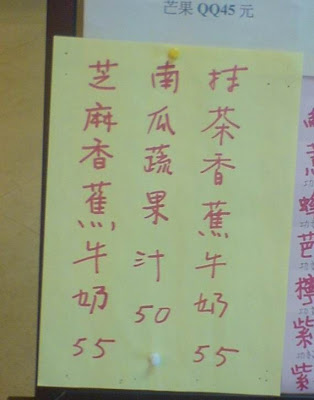 芒果 QQ45 元
抹茶香蕉牛奶 55
南瓜蔬果汁 50
芝麻香蕉牛奶 55